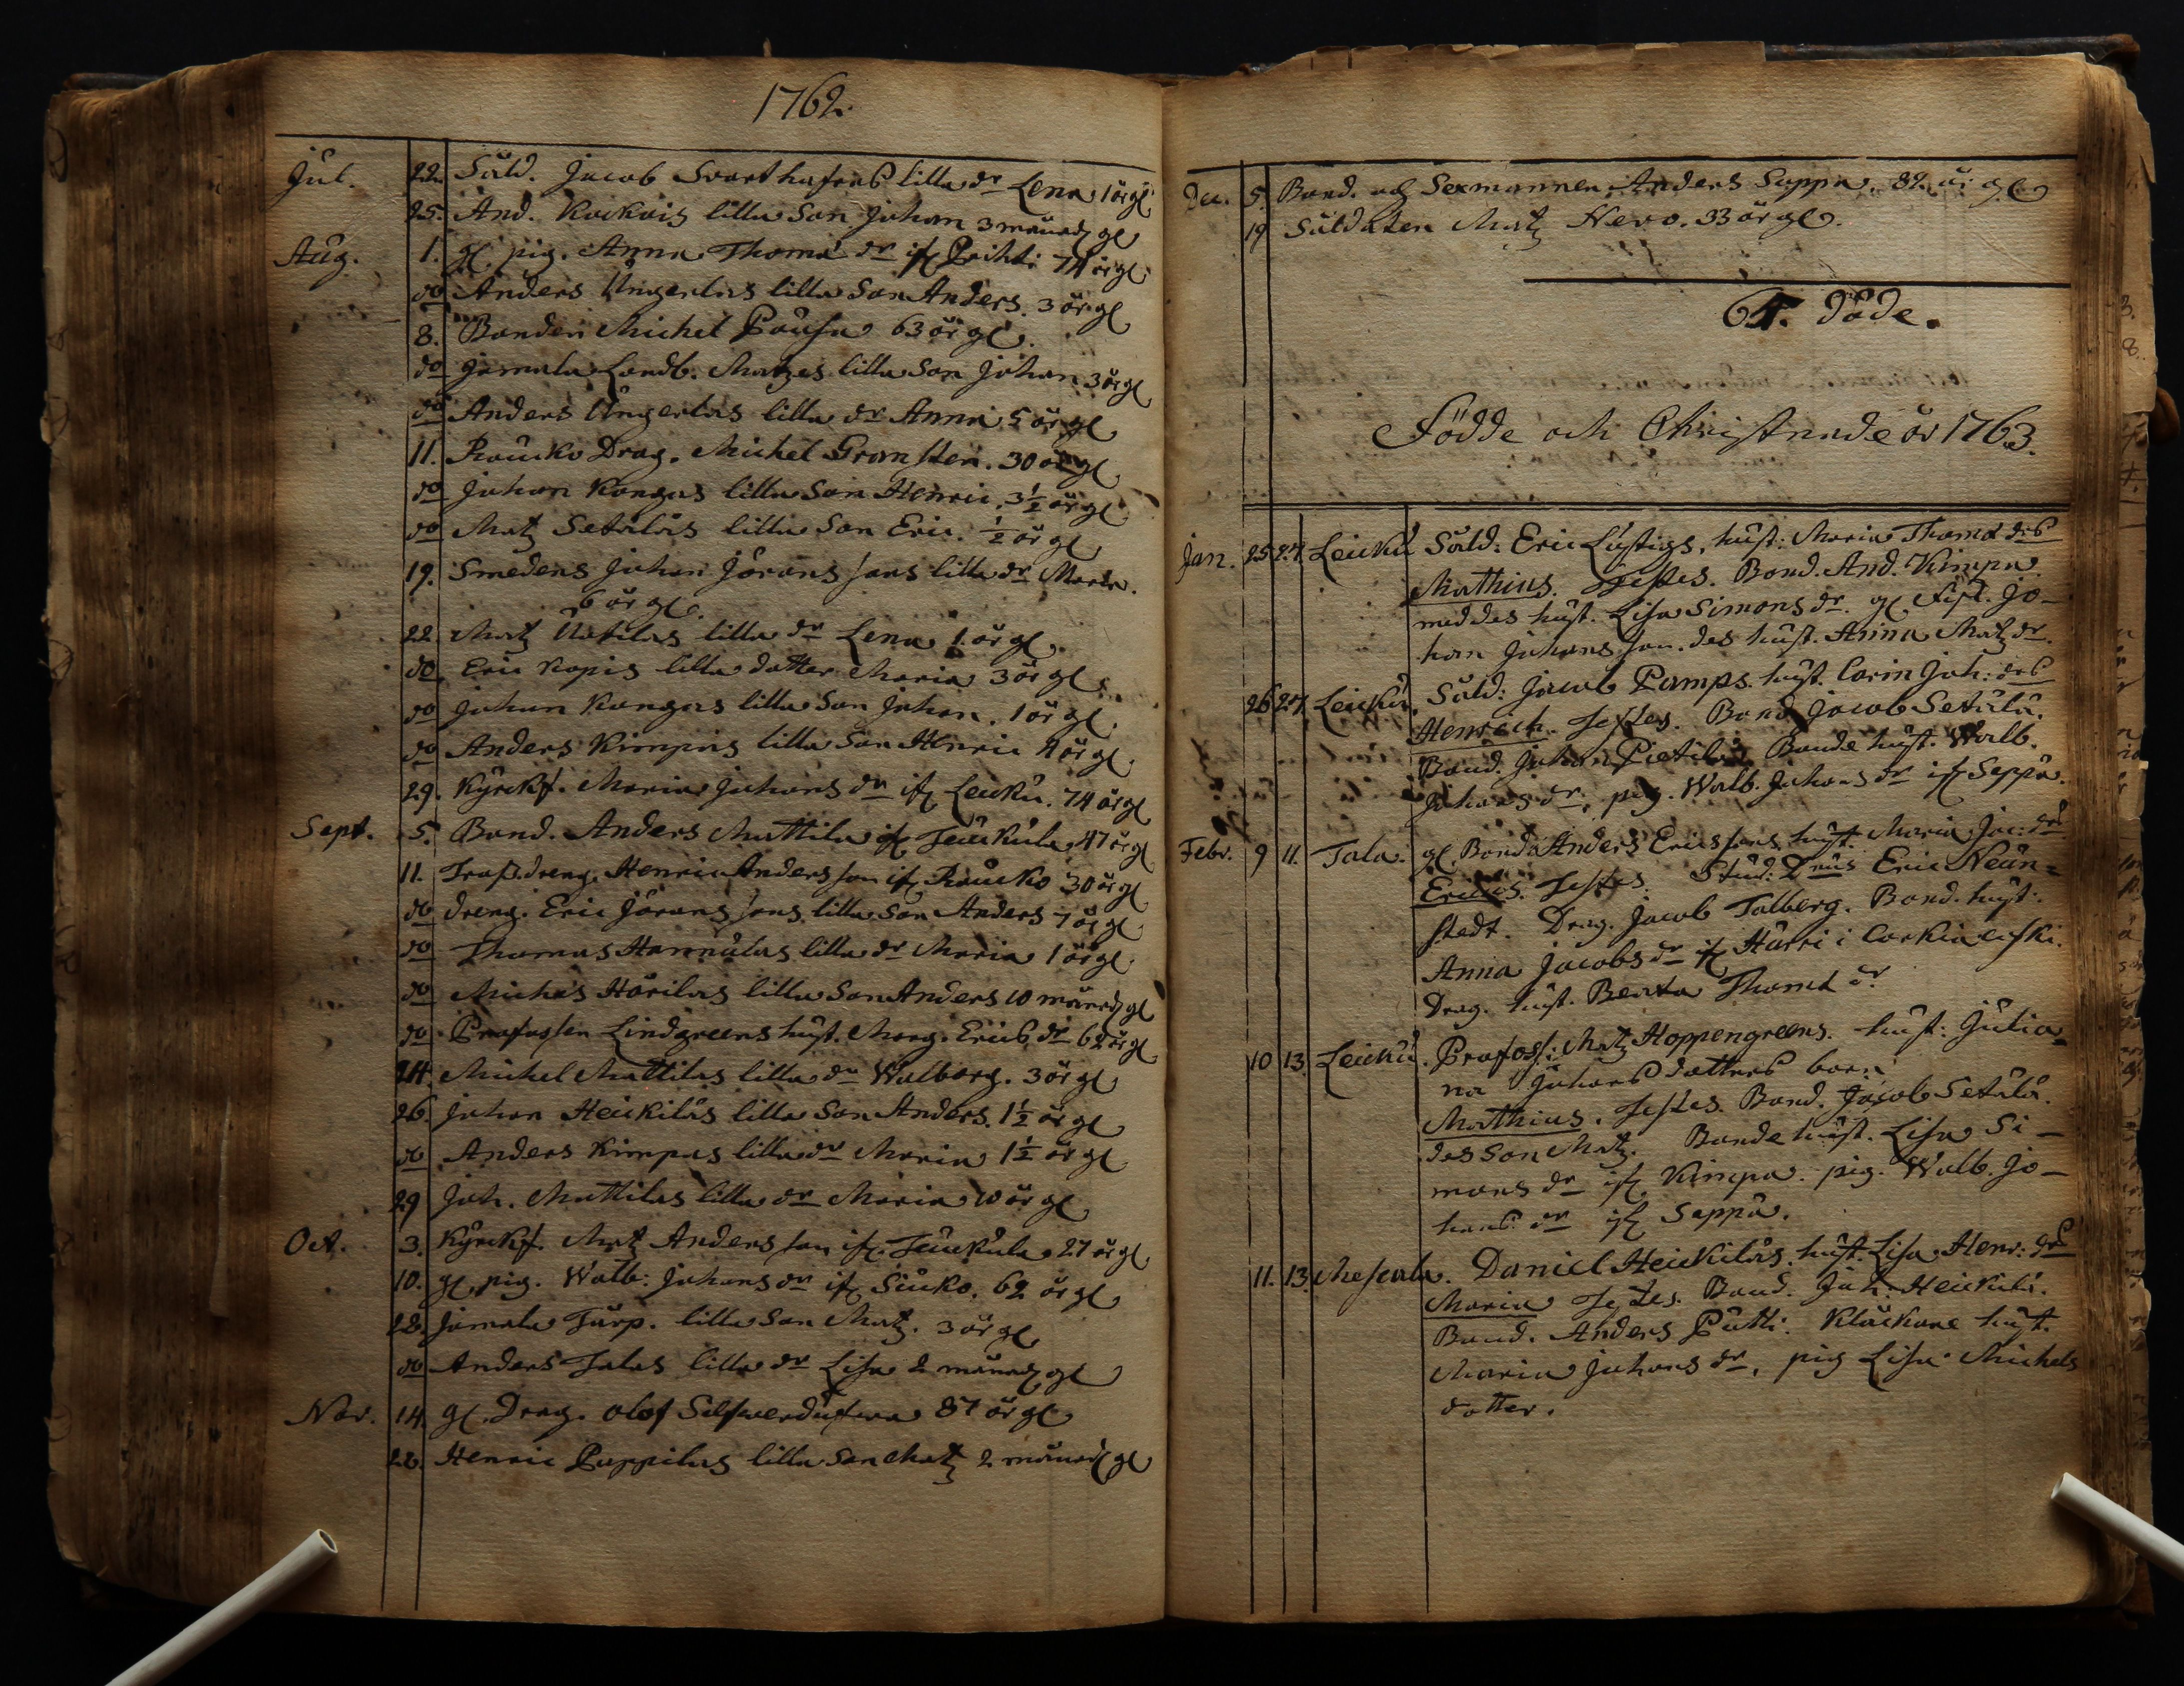 1762.
Jul. 22. Såld. Jacob Svarthafras lilla dr Lena 1 år gl
25. And. Kockois lilla Son Johan 3 månad gl
Aug. 1. gl pig. Anna Thomæ dr if 74 år gl
do Anders Ungerlas lilla Son Anders. 3 år gl
8. Bonden Michel Pausa 63 år gl.
do Jamala Landb. Matzes lilla Son Johan 3 år gl
do Anders Ungerlas lilla dr Anna 5 år gl
11. Raucko Drag. Michel Gransten. 30 år gl
do Johan Kangas lilla Son Henric. 3½ år gl
do Matz Setälas lilla Son Eric. ½ år gl
19. Smedens Johan Jörans sons lilla dr Maria.
6 år gl.
22. Matz Uotilas lilla dr Lena 1 år gl.
do Eric Kopis lilla dotter Maria 3 år gl.
do Johan Kangas lilla Son Johan. 1 år gl.
do Anders Kimpas lilla Son Henric 4 år gl
29. Kyrckf. Maria Johans dr if Leicku. 74 år gl
Sept. 5. Bond. Anders Mattila if Teuckula 47 år gl
11. dreng. Henric Anders son if Raucko 30 år gl
do dreng. Eric Jörans sons lilla Son Anders 7 år gl
do Thomas Hannulas lilla dr Maria 1 år gl
do Michas Härilas lilla Son Anders 10 månad gl
do Profossen Lindgreens hust. Marg. Erics dr 62 år gl
24. Michel Mattilas lilla dr Walborg. 3 år gl
26. Johan Heickiläs lilla Son Anders. 1½ år gl
do Anders Kimpas lilla dr Maria 1½ år gl
29 Joh. Mattilas lilla dr Maria 10 år gl
Oct. 3. Kyrckf. Matz Anders son if Teuckula 27 år gl
10. gl pig. Walb: Johans dr if Siuko. 62 år gl
28. Jamala Torp. lilla Son Matz. 3 år gl
do Anders Talas lilla dr Lisa 2 månad gl
Nov. 14. gl. Drag. Olof 87 år gl
28. Henric Pappilas lilla Son Matz 2 månad gl
Dec. 5. Bond. och Sexmannen Anders Seppä. 82. år gl
19 Såldaten Matz Nevo. 33 år gl.
65. döde.
Födde och Christnade år 1763.
Jan. 25 27. Leickü Såld: Eric Lustigs, hust: Maria Thomæ drs
Mathias. Testes. Bond. And. Kimpa.
med des hust. Lisa Simons dr. gl Jo-
han Johans son. des hust. Anna Matz dr.
26 27 Leickü. Såld: Jacob Pamps. hust. Carin Joh: drs
Henrich. Testes. Bond Jacob Setälä.
Bond. Johan Pietilä. Bonde hust. Walb.
Johans dr, pig. Walb. Johans dr if Seppä.
Febr. 9 11. Tala. gl. Bond Anders Ericssons hust. Maria Jac: drs
Ericus. Testes. Stud: Dnus Eric Neün=
stedt. Drag. Jacob Talberg. Bond. hust:
Anna Jacobs dr if Harri i
Drag. hust. Beata Thomæ dr
10 13. Leickü. Profoss: Matz Hoppengreens. hust: Julia=
na Johans dotters barn
Mathias. Testes. Bond. Jacob Setälä.
des son Matz. Bonde hust. Lisa Si-
mons dr if Kimpa. pig. Walb. Jo-
hans dr if Seppä.
11. 13. Mescala. Daniel Heickiläs. hust. Lisa Henr: drs
Maria Testes. Bond. Joh. Heickilä.
Bond. Anders Pütti. Klåckare hust.
Maria Johans dr, pig Lisa Michels
dotter.